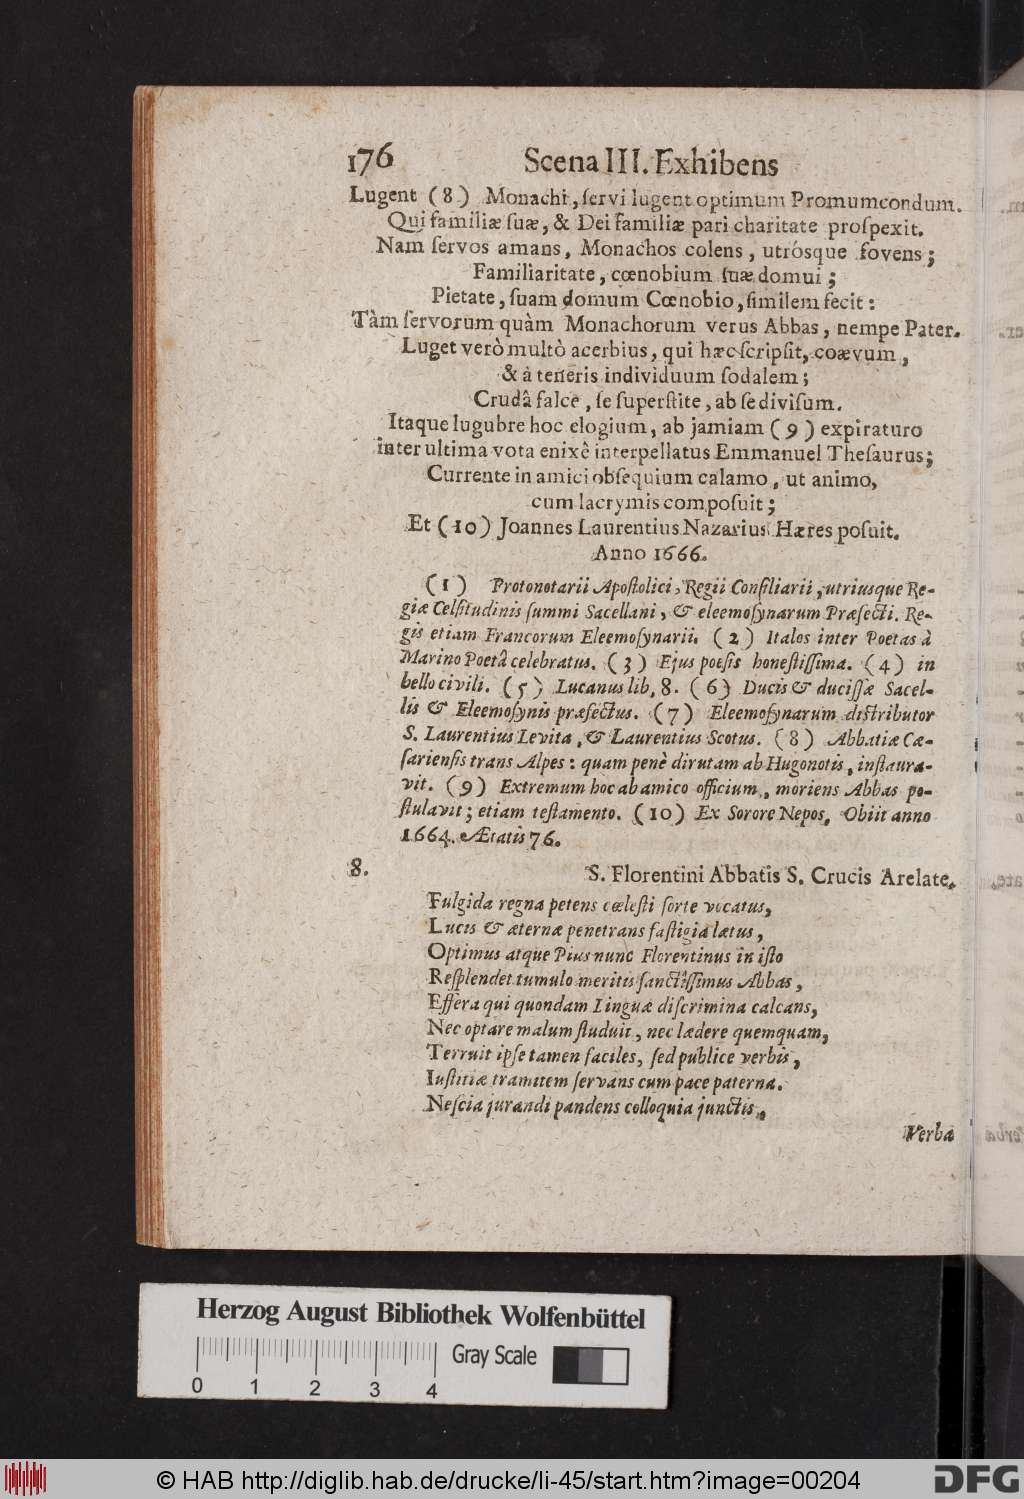 176 Scena III. Exhibens
Lugent (8) Monachi, ſervi lugent optimum Promumcondum.
Qui familiæ ſuæ, & Dei Familiæ pari charitate proſpexit.
Nam ſervos amans, Monachos colens, utrósque fovens;
Familiaritate, cœnobium ſuæ domui;
Pietate, ſuam domum Cœnobio, ſimilem fecit:
Tàm ſervorum quàm Monachorum verus Abbas, nempe Pater.
Luget verò multò acerbius, qui hæc ſcripſit, coævum,
& à teneris individuum ſodalem;
Crudâ falce, ſe ſuperſtite, ab ſe diviſum.
Itaque lugubre hoc elogium, ab jamiam (9) expiraturo
inter ultima vota enixè interpellatus Emmanuel Theſaurus;
Currente in amici obſequium calamo, ut animo,
cum lacrymis compoſuit;
Et (10) Joannes Laurentius Nazarius Hæres poſuit.
Anno 1666.
(1) Protonotarii Apoſtolici, Regii Conſiliarii, utriusque Re-
giæ Celſitudinis ſummi Sacellani, & eleemoſynarum Præfecti. Re-
gis etiam Francorum Eleemoſynarii. (2) Italos inter Poetas à
Marino Poetâ celebratus. (3) Ejus poeſis honeſtiſſima. (4) in
bello civili. (5) Lucanus lib. 8. (6) Ducis & duciſſæ Sacel-
lis & Eleemoſynis præfectus. (7) Eleemoſynarum diſtributor
S. Laurentius Levita, & Laurentius Scotus. (8) Abbatiæ Cæ-
ſarienſis trans Alpes: quam penè dirutam ab Hugonotis, inſtaura-
vit. (9) Extremum hoc ab amico officium, moriens Abbas po-
ſtulavit; etiam teſtamento. (10) Ex Sorore Nepos. Obiit anno
1664. Ætatis 76.
8. S. Florentini Abbatis S. Crucis Arelate.
Fulgida regna petens cœleſti ſorte vocatus,
Lucis & æternæ penetrans faſtigia lætus,
Optimus atque Pius nunc Florentinus in iſto
Reſplendet tumulo meritis ſanctiſſimus Abbas,
Effera qui quondam Linguæ diſcrimina calcans,
Nec optare malum ſtuduit, nec lædere quemquam,
Terruit ipſe tamen faciles, ſed publice verbis,
Iuſtitiæ tramitem ſervans cum pace paterna.
Neſcia jurandi pandens colloquia junctis,
Verba
Herzog August Bibliothek Wolfenbüttel
Gray Scale
0 1 2 3 4
© HAB http://diglib.hab.de/drucke/li-45/start.htm?image=00204
DFG